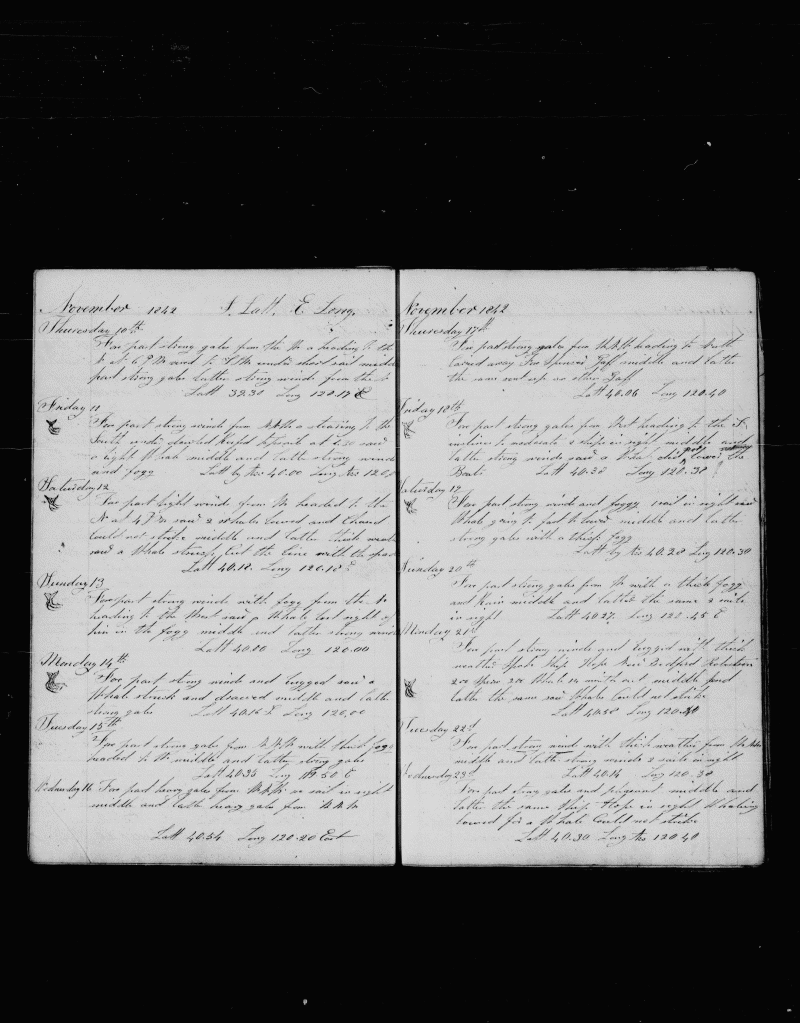 November 1842 S. Latt. E. Long.
Thursday 10th
Fore part strong gales from the W a heading to the
6 PM and to under short sail middle
part strong gales Latter strong winds from the
Latt 39.30 Long 120.17 E
Friday 11
Fore part strong winds from
South under close Reefd topsails at 4.30 saw
a right Whale middle and latter strong winds
and fogg Latt by Acc 40.00 Long Acc 120.0
Saturday 12
Fore part light winds from W headed to the
N at 4 PM saw 2 whales Lowed and Chased
Could not strike middle and latter thick weather
saw a Whale struck Cut the line with the spade
Latt 40.18. Long 120.18 E
Sunday 13
Fore part strong winds with fogg from the
heading to the West saw a Whale lost sight of
him in the fogg middle and latter strong winds
Latt 40.00 Long 120.00
Monday 14th
Fore part strong winds and rugged saw a
Whale struck and drawed middle and latter
strong gales Latt 40.16 S Long 120.00
Tuesday 15th
Fore part strong gales from with thick fogg
headed to W middle and latter strong gales
Latt 40.35 Long 50 E
Wednesday 16 Fore part heavy gales from no sail in sight
middle and latter heavy gales from
Latt 40.54 Long 120-20 East
November 1842
Thursday 17th
Fore part strong gales from heading to South
Carried away Gaff middle and latter
the same sent up another Gaff
Latt 40.06 Long 120.40
Friday 18th
Fore part strong gales from West heading to the S
inclin to moderate 2 ships in sight middle and
latter strong winds saw a Whale did not lower the
Boats Latt 40.38 Long 120.38
Saturday 19
Fore part strong winds and foggy 1 sail in sight saw
Whale going to fast to lower middle and latter
strong gales with a thick fogg
Latt by Acc 40.28 Long 120.30
Sunday 20th
Fore part strong gales from W with a thick fogg
and Rain middle and latter the same 2 sails
in sight Latt 40.27. Long 45 E
Monday 21st
Fore part strong winds and rugged with thick
weather Spoke Ship Hope New Bedford
200 Sperm 200 Whale 14 months out middle and
latter the same saw Whale Could not strike
Latt 40.50 Long
Tuesday 22d
Fore part strong winds with thick weather from the
middle and latter strong winds 2 sails in sight
Wednesday 23d Latt 40.14 Long 120.30
Fore part strong gales and pleasant middle and
latter the same Ship Hope in sight Whaling
lowed for a Whale Could not strike
Latt 40.30 Long Acc 120 40